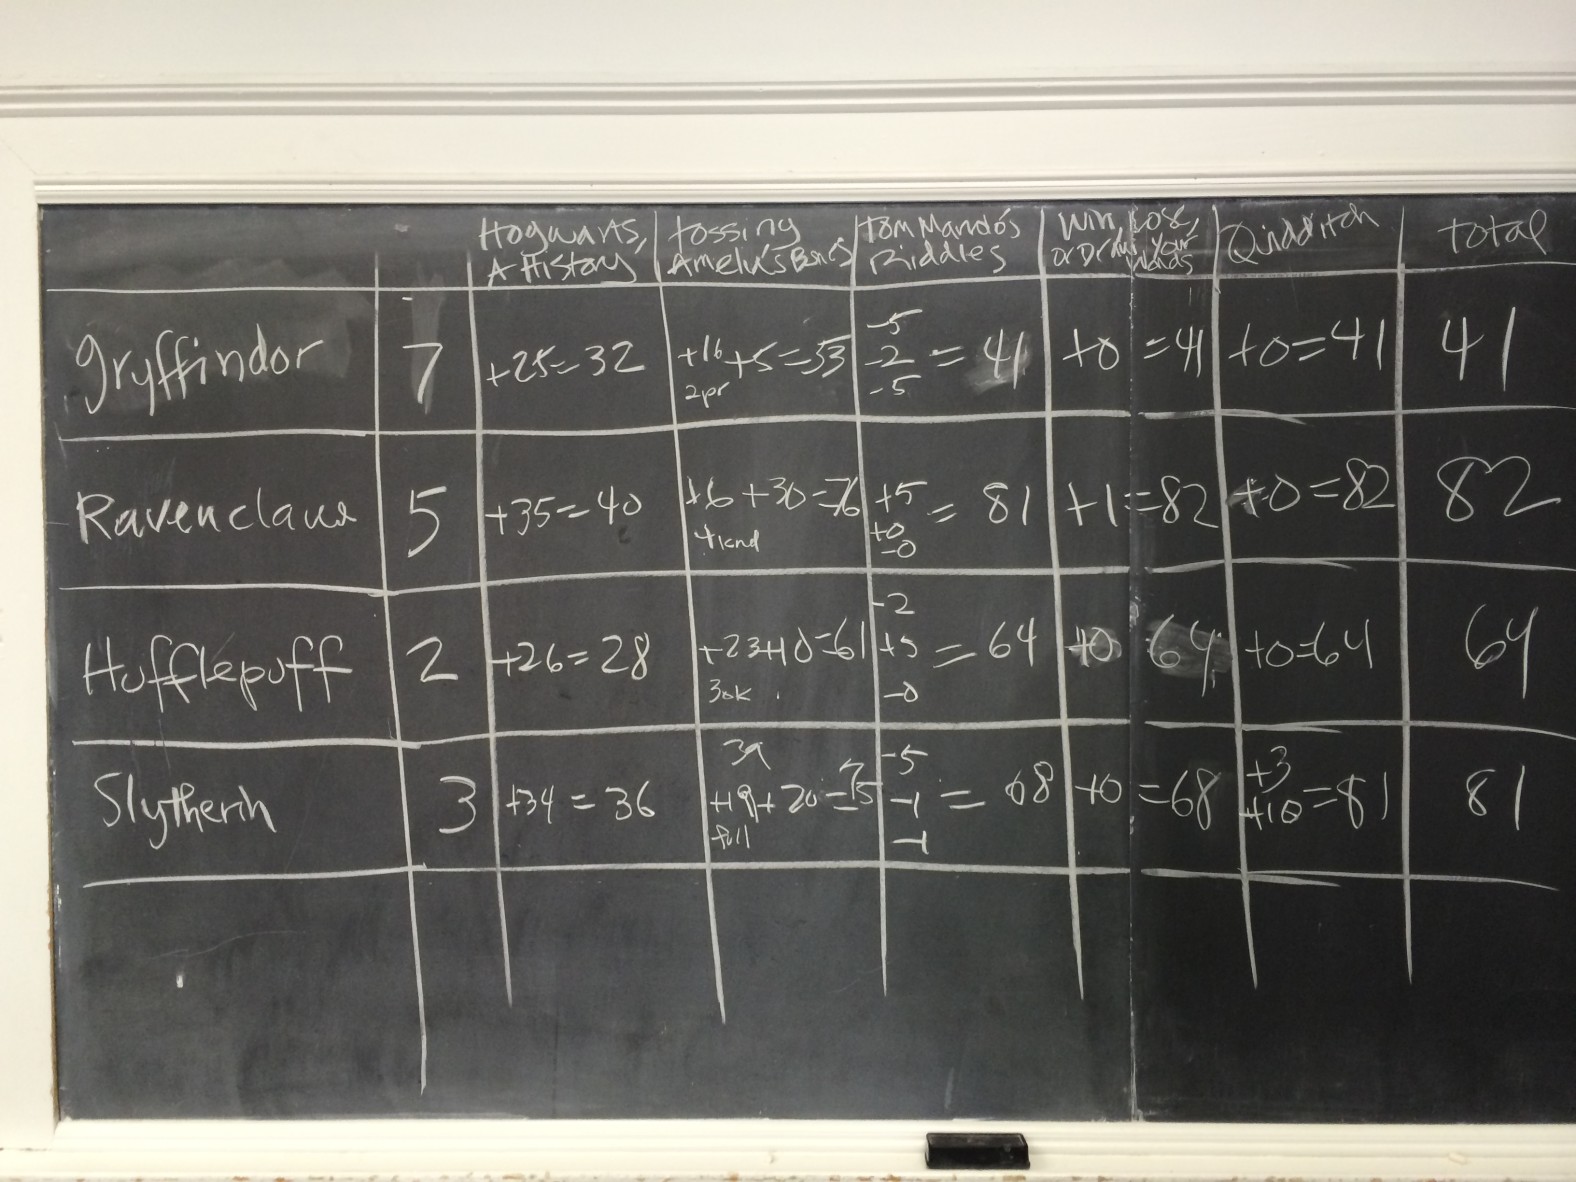 Hogwarts,
A History
Tossing
Amelia's Bones
Tom Mando's
Riddles
Win, Lose,
or Draw Your
Wands
Quidditch
total
gryffindor 7 +25=32 +16 +5=53 -5 = 41 +0 =41 +0=41 41
2pr -2
-5
Ravenclaw 5 +35=40 +6 +30=76 +5 = 81 +1=82 +0=82 82
4kind +0
-0
Hufflepuff 2 +26=28 +23+10=61 -2 = 64 +0 64 +0=64 64
3ok +5
-0
Slytherin 3 +34=36 +19+20=75 -5 = 68 +0=68 +3 =81 81
full -1 +10
-1